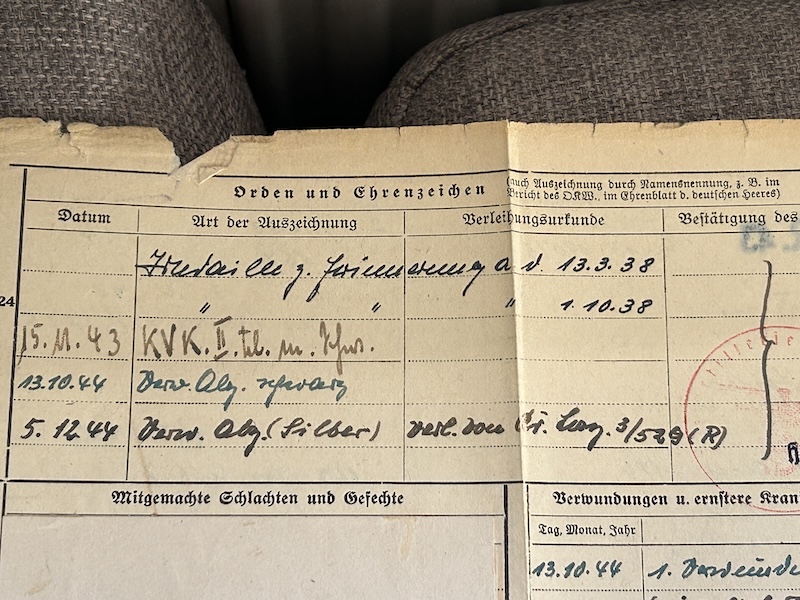 Orden und Ehrenzeichen (auch Auszeichnung durch Namensnennung, z. B. im
Bericht des OKW., im Ehrenblatt d. deutschen Heeres)
Datum Art der Auszeichnung Verleihungsurkunde Bestätigung des
Medaille z. Erinnerung a d. 13.3.38
24 " " " 1.10.38
15.11.43 KVK. II. kl. m. Schw.
13.10.44 Verw. Abz. schwarz
5.12.44 Verw. Abz. (Silber) verl. von 3/529 (R)
Mitgemachte Schlachten und Gefechte Verwundungen u. ernstere Kran
Tag, Monat, Jahr
13.10.44 1.